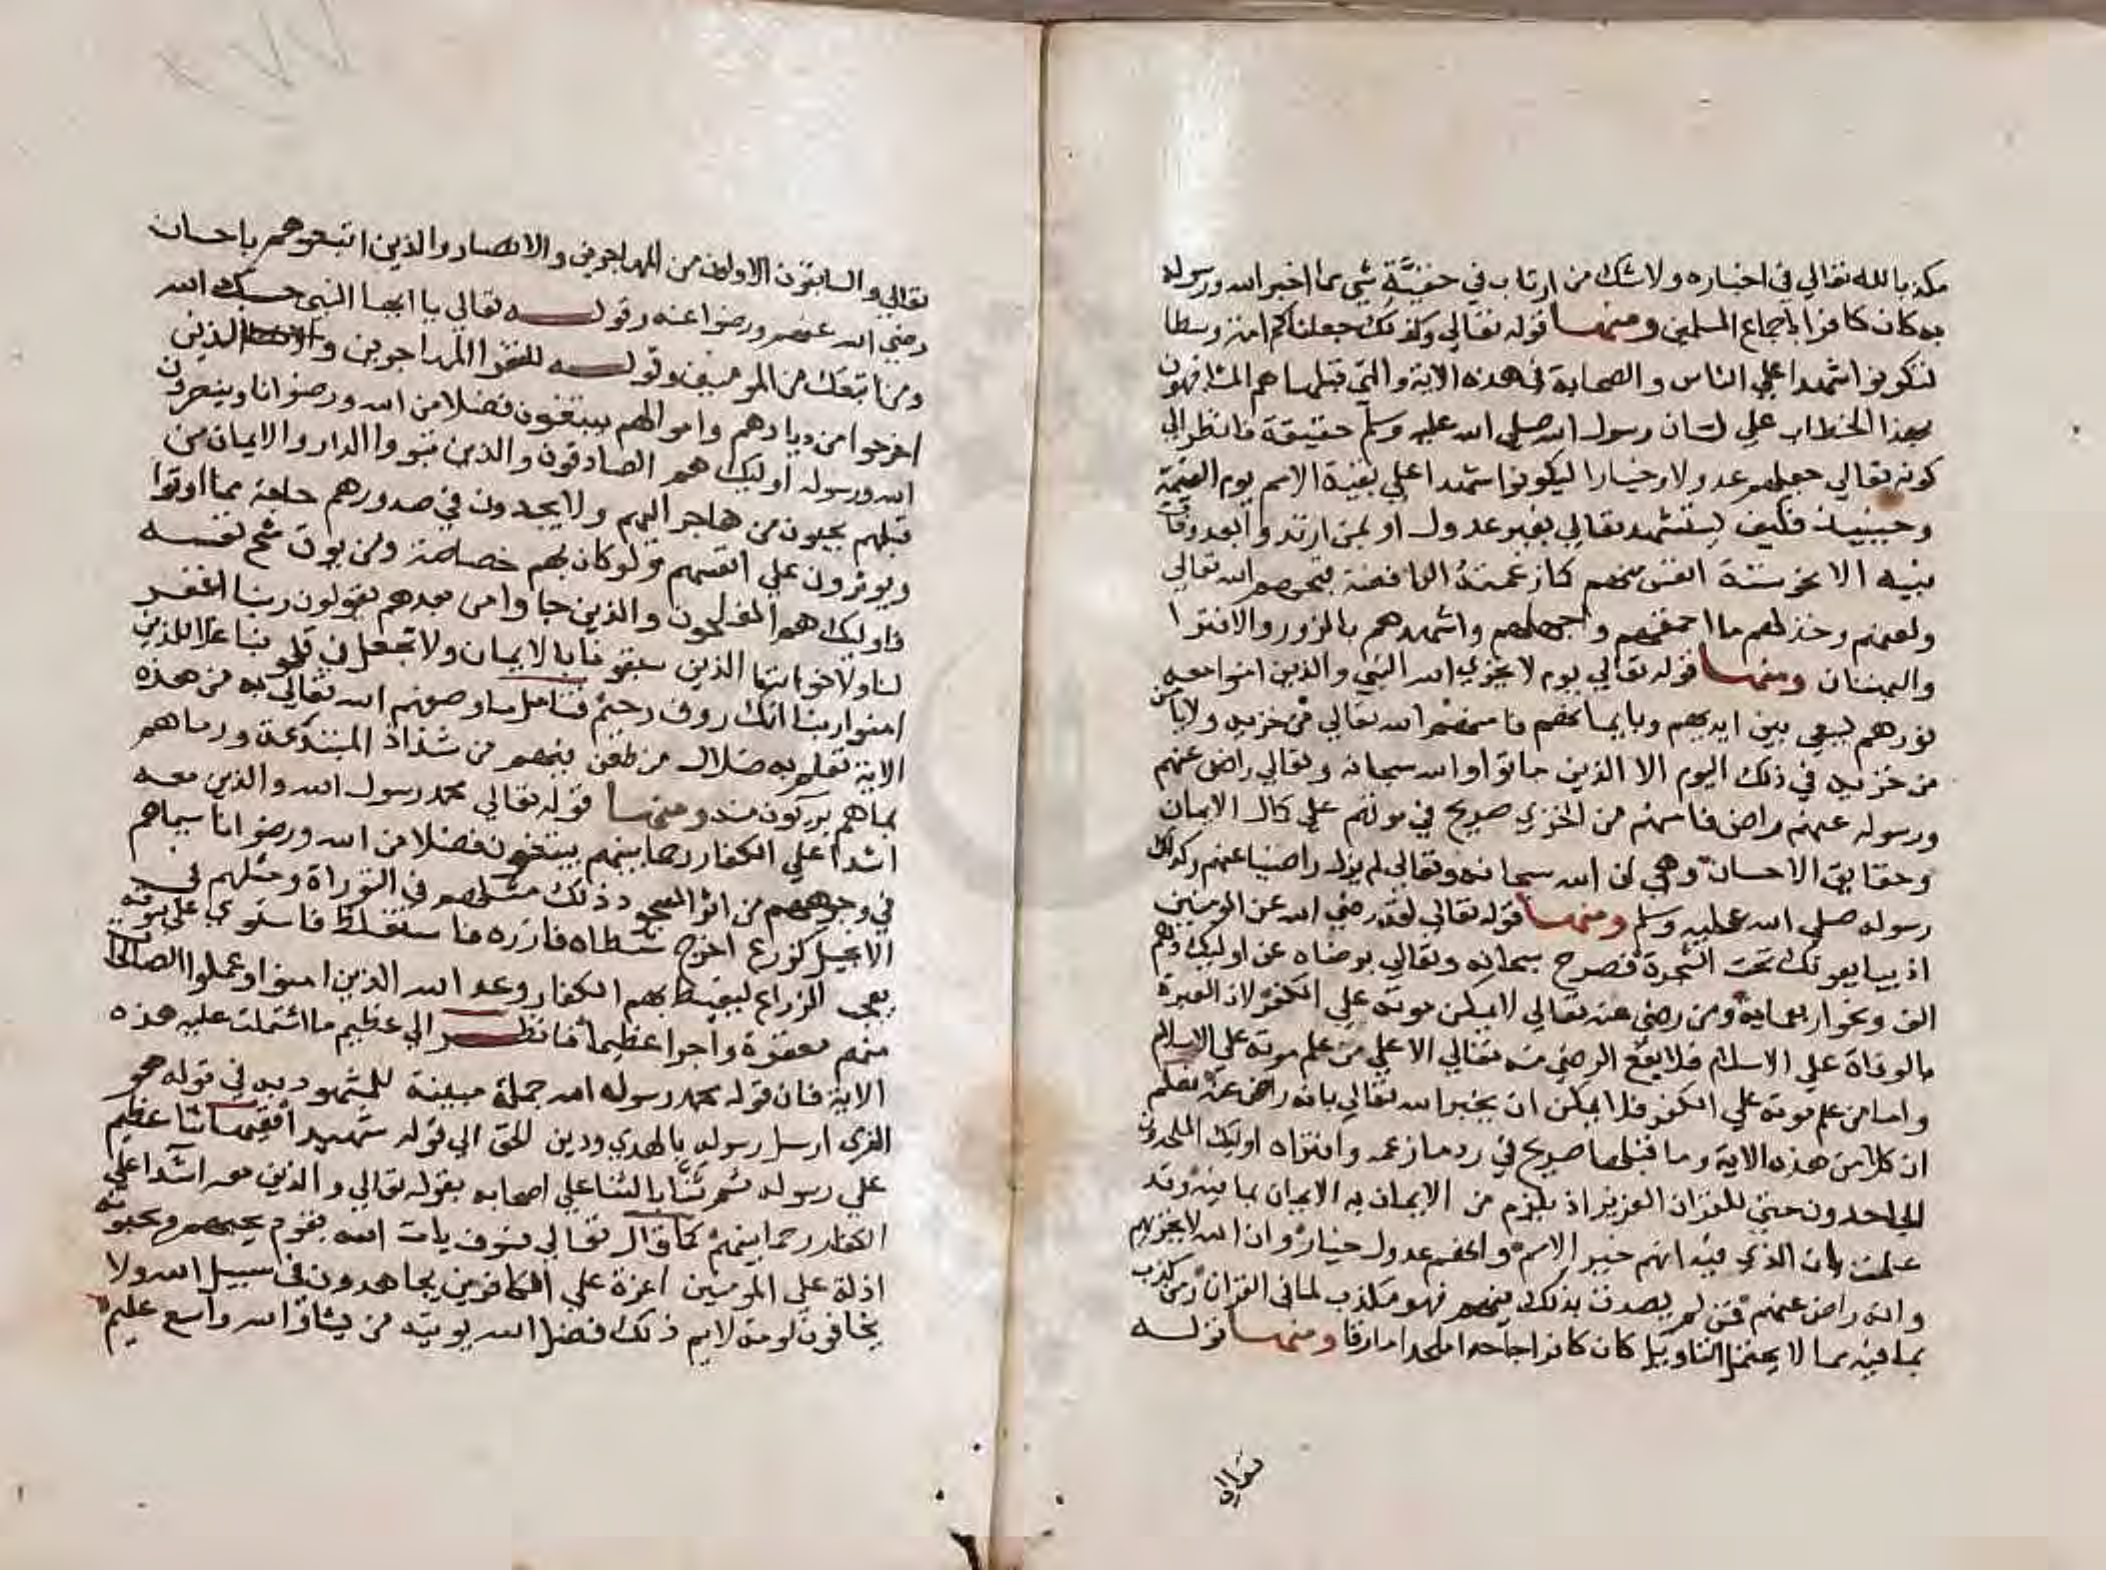 مكذبا لله تعالي في اخباره ولا شك من ارتاب في حقيَّة شي مما اخبر الله ورسوله
به كان كافرا باجماع المسلمين ومنها قوله تعالي وكذلك جعلناكم امة وسطا
لتكونوا شهدا علي الناس والصحابة في هذه الاية والتي قبلها هم المشافهون
بهذا الخطاب علي لسان رسول الله صلي الله عليه وسلم حقيقة فانظر الي
كونه تعالي جعلهم عدولا وخيارا ليكونوا شهدا علي بقية الامم يوم القيمة
وحينيذ فكيف يستشهد تعالي بغير عدول او بمن ارتد وا بعد وفاة
نبيه الا نحو ستة انفس منهم كما زعمته الرافضة قبحهم الله تعالي
ولعنهم وخذلهم ما احمقهم واجهلهم واشهدهم بالزور والافترا
والبهتان ومنها قوله تعالي يوم لا يخزي الله النبي والذين امنوا معه
نورهم يسعي بين ايديهم وبايمانهم فامنهم الله تعالي من خزيه ولا يامن
من خزيه في ذلك اليوم الا الذين ماتوا والله سبحانه وتعالي راض عنهم
ورسوله عنهم راض فامنهم من الخزي صريح في موتهم علي كمال الايمان
وحقايق الاحسان وهي ان الله سبحانه وتعالي لم يزل راضيا عنهم وكذلك
رسوله صلي الله عليه وسلم ومنها قوله تعالي لقد رضي الله عن المومنين
اذ يبايعونك تحت الشجرة فصرح سبحانه وتعالي برضاه عن اوليك وهم
الف ونحو اربعماية ومن رضي عنه تعالي لا يمكن موته علي الكفر لان العبرة
بالوفاة علي الاسلام فلا يقع الرضي منه تعالي الا علي من علم موته علي الاسلام
واما من علم موته علي الكفر فلا يمكن ان يخبر الله تعالي بانه راض عنه فعلم
ان كلا من هذه الاية وما قبلها صريح في رد ما زعمه وافتراه اوليك الملحدون
الجاحدون حتي للقران العزيز اذ يلزم من الايمان به الايمان بما فيه وقد
علمت بان الذي فيه انهم خير الامم وانهم عدول خيار وان الله لا يخزيهم
وانه راض عنهم فمن لم يصدق بذلك فيهم فهو مكذب لما في القران ومن كذب
بما فيه مما لا يحتمل التاويل كان كافرا جاحدا ملحدا مارقا ومنها قوله
تعالي
تعالي والسابقون الاولون من المهاجرين والانصار والذين اتبعوهم باحسان
رضي الله عنهم ورضوا عنه وقوله تعالي يا ايها النبي حسبك الله
ومن اتبعك من المومنين وقوله للفقرا المهاجرين الذين
اخرجوا من ديارهم واموالهم يبتغون فضلا من الله ورضوانا وينصرون
الله ورسوله اوليك هم الصادقون والذين تبووا الدار والايمان من
قبلهم يحبون من هاجر اليهم ولا يجدون في صدورهم حاجة مما اوتوا
ويوثرون علي انفسهم ولو كان بهم خصاصة ومن يوق شح نفسه
فاوليك هم المفلحون والذين جاوا من بعدهم يقولون ربنا اغفر
لنا ولاخواننا الذين سبقونا بالايمان ولا تجعل في قلوبنا غلا للذين
امنوا ربنا انك روف رحيم فتامل ما وصفهم الله تعالي به من هذه
الاية تعلم به ضلال من طعن فيهم من شذاذ المبتدعة ورماهم
بما هم بريون منه ومنها قوله تعالي محمد رسول الله والذين معه
اشدا علي الكفار رحما بينهم يبتغون فضلا من الله ورضوانا سيماهم
في وجوههم من اثر السجود ذلك مثلهم في التوراة ومثلهم في
الانجيل كزرع اخرج شطاه فازره فاستغلظ فاستوي علي سوقه
يعجب الزراع ليغيظ بهم الكفار وعد الله الذين امنوا وعملوا الصالحات
منهم مغفرة واجرا عظيما فانظر الي عظيم ما اشتملت عليه هذه
الاية فان قوله محمد رسول الله جملة مبينة للمشهود به في قوله هو
الذي ارسل رسوله بالهدي ودين الحق الي قوله شهيدا ففيها ثنا عظيم
علي رسوله ثم ثنَّا بالثنا علي اصحابه بقوله تعالي والذين معه اشدا علي
الكفار رحما بينهم كما قال تعالي فسوف يات الله بقوم يحبهم ويحبونه
اذلة علي المومنين اعزة علي الكافرين يجاهدون في سبيل الله ولا
يخافون لومة لايم ذلك فضل الله يوتيه من يشا والله واسع عليم